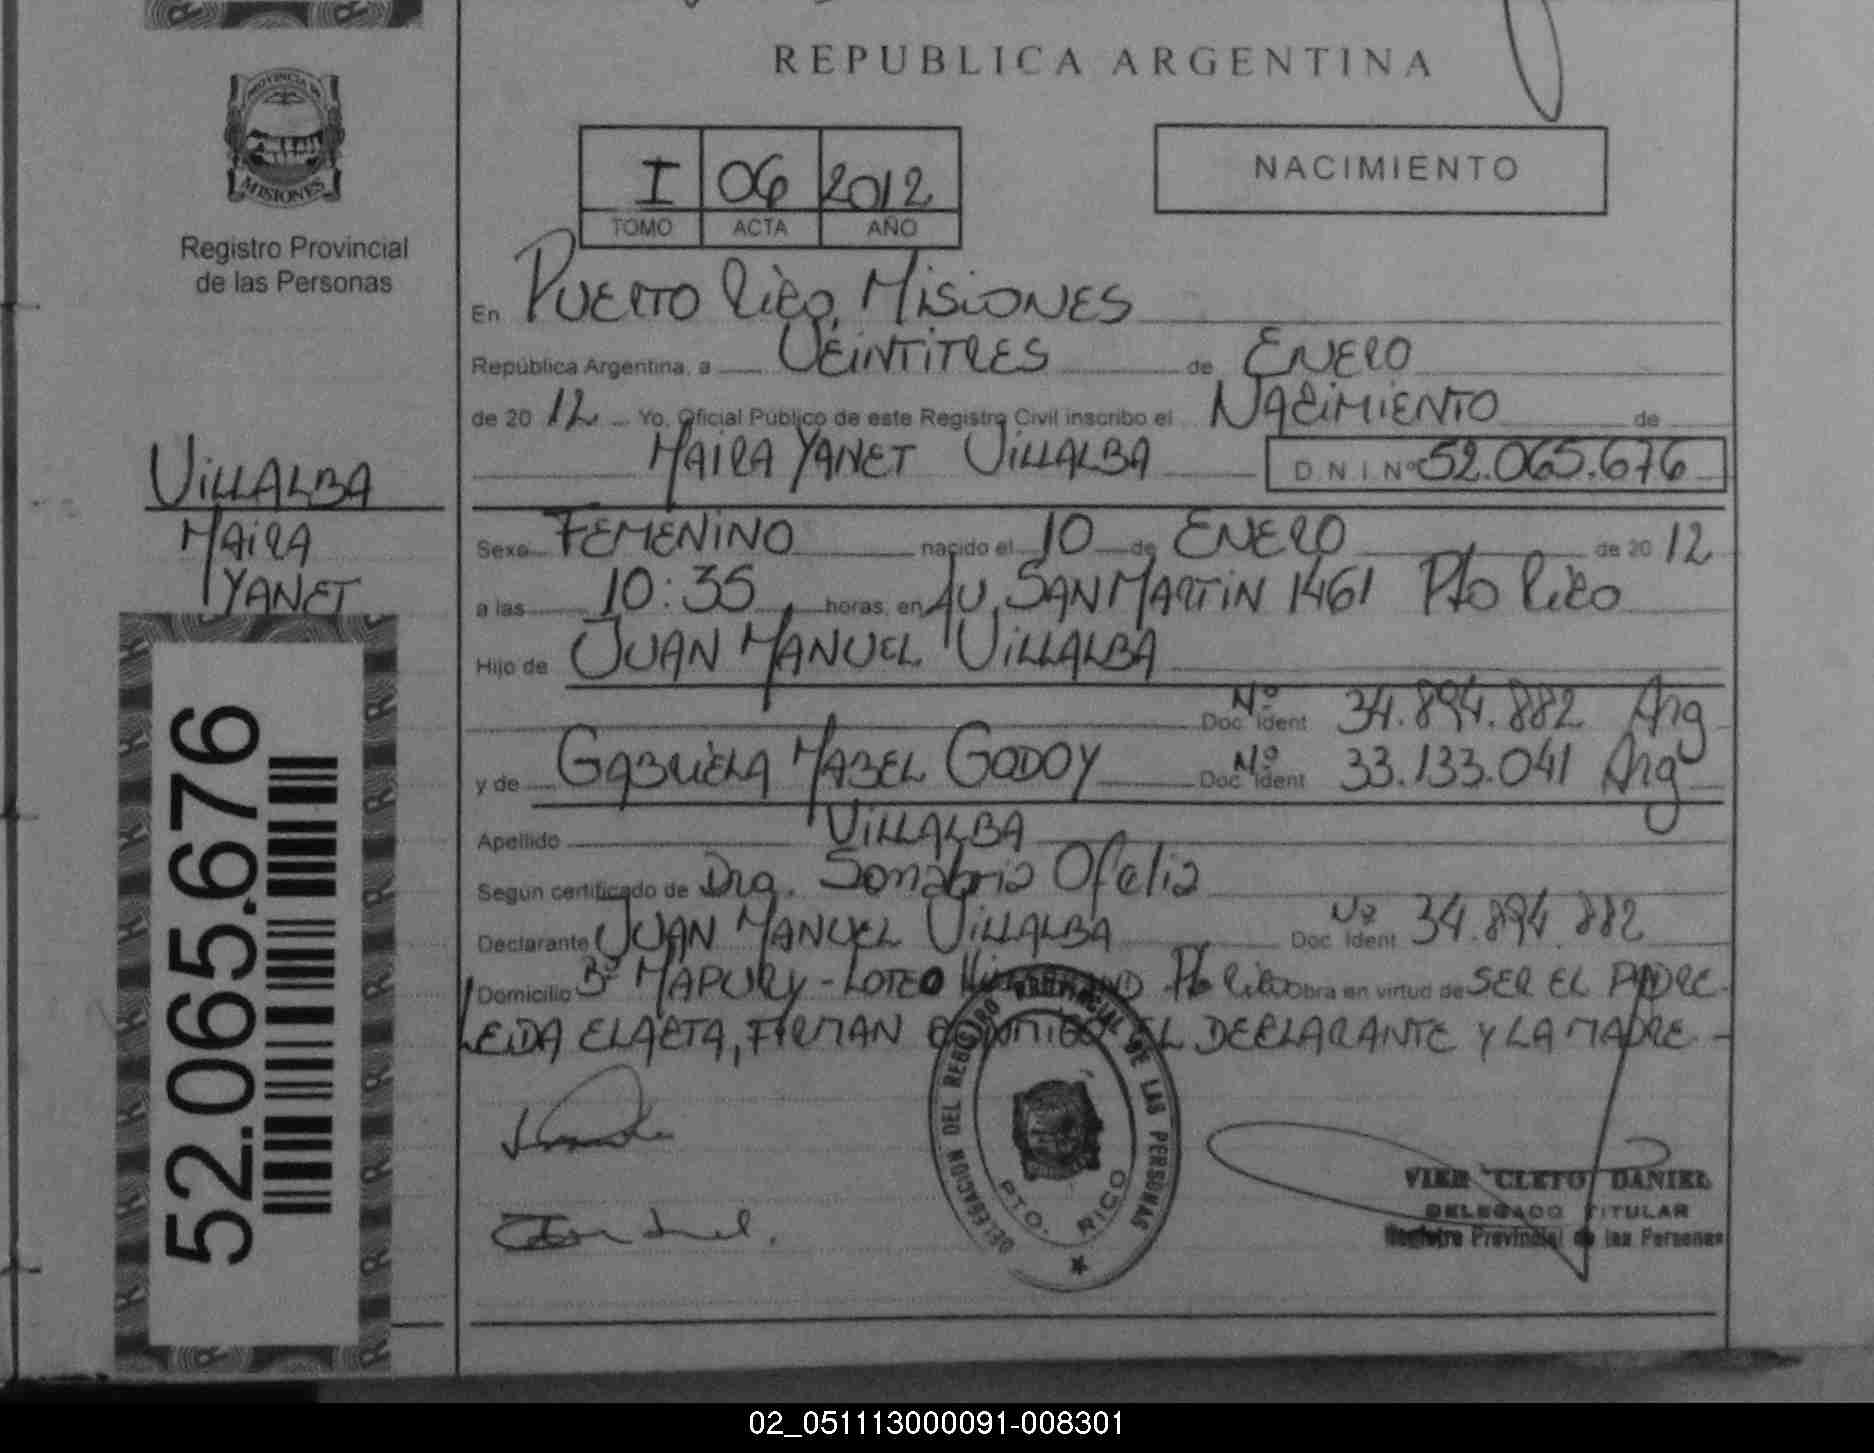 REPUBLICA ARGENTINA
PROVINCIA DE
MISIONES
Registro Provincial
de las Personas
I 06 2012
TOMO ACTA AÑO
NACIMIENTO
En PUERTO RICO, MISIONES
República Argentina, a VEINTITRES de ENERO
de 20 12 Yo, Oficial Público de este Registro Civil inscribo el NACIMIENTO de
MAIRA YANET VILLALBA D N I Nº 52.065.676
VILLALBA
MAIRA
YANET
Sexo FEMENINO nacido el 10 de ENERO de 20 12
a las 10:35 horas, en AV. SAN MARTIN 1461 Pto Rico
Hijo de JUAN MANUEL VILLALBA
Doc Ident Nº 34.894.882 Arg
y de GABRIELA MABEL GODOY Doc Ident Nº 33.133.041 Arg
Apellido VILLALBA
Según certificado de Dra. Sanabria Ofelia
Declarante JUAN MANUEL VILLALBA Doc Ident Nº 34.894.882
Domicilio Bº MAPURY - LOTEO Pto Rico Obra en virtud de SER EL PADRE
LEIDA EL ACTA, FIRMAN CONMIGO EL DECLARANTE Y LA MADRE -
52.065.676
DELEGACION DEL REGISTRO PROVINCIAL DE LAS PERSONAS
PTO. RICO
VIER CLETO DANIEL
DELEGADO TITULAR
Registro Provincial de las Personas
02_051113000091-008301